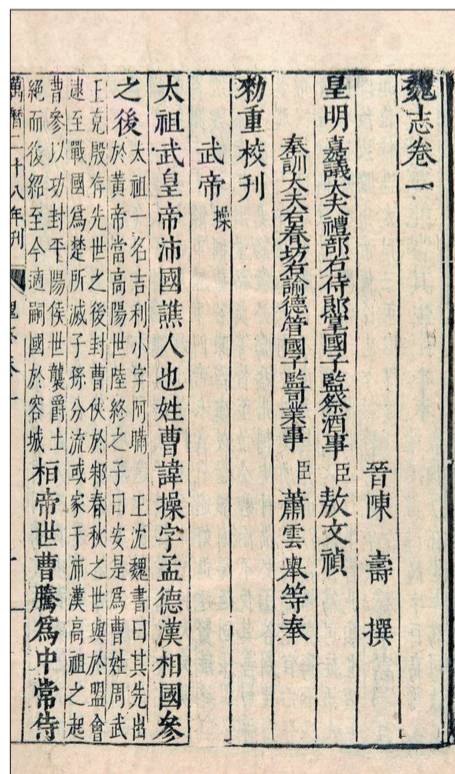 魏志卷一
晉陳壽撰
皇明嘉議大夫禮部右侍郎掌國子監祭酒事臣敖文禎
奉訓大夫右春坊右諭德管國子監司業事臣蕭雲舉等奉
勑重校刊
武帝操
太祖武皇帝沛國譙人也姓曹諱操字孟德漢相國參
之後
太祖一名吉利小字阿瞞 王沈魏書曰其先出
於黃帝當高陽世陸終之子曰安是爲曹姓周武
王克殷存先世之後封曹俠於邾春秋之世與於盟會
逮至戰國爲楚所滅子孫分流或家于沛漢高祖之起
曹參以功封平陽侯世襲爵土
絕而復紹至今適嗣國於容城
桓帝世曹騰爲中常侍
萬曆二十八年刊